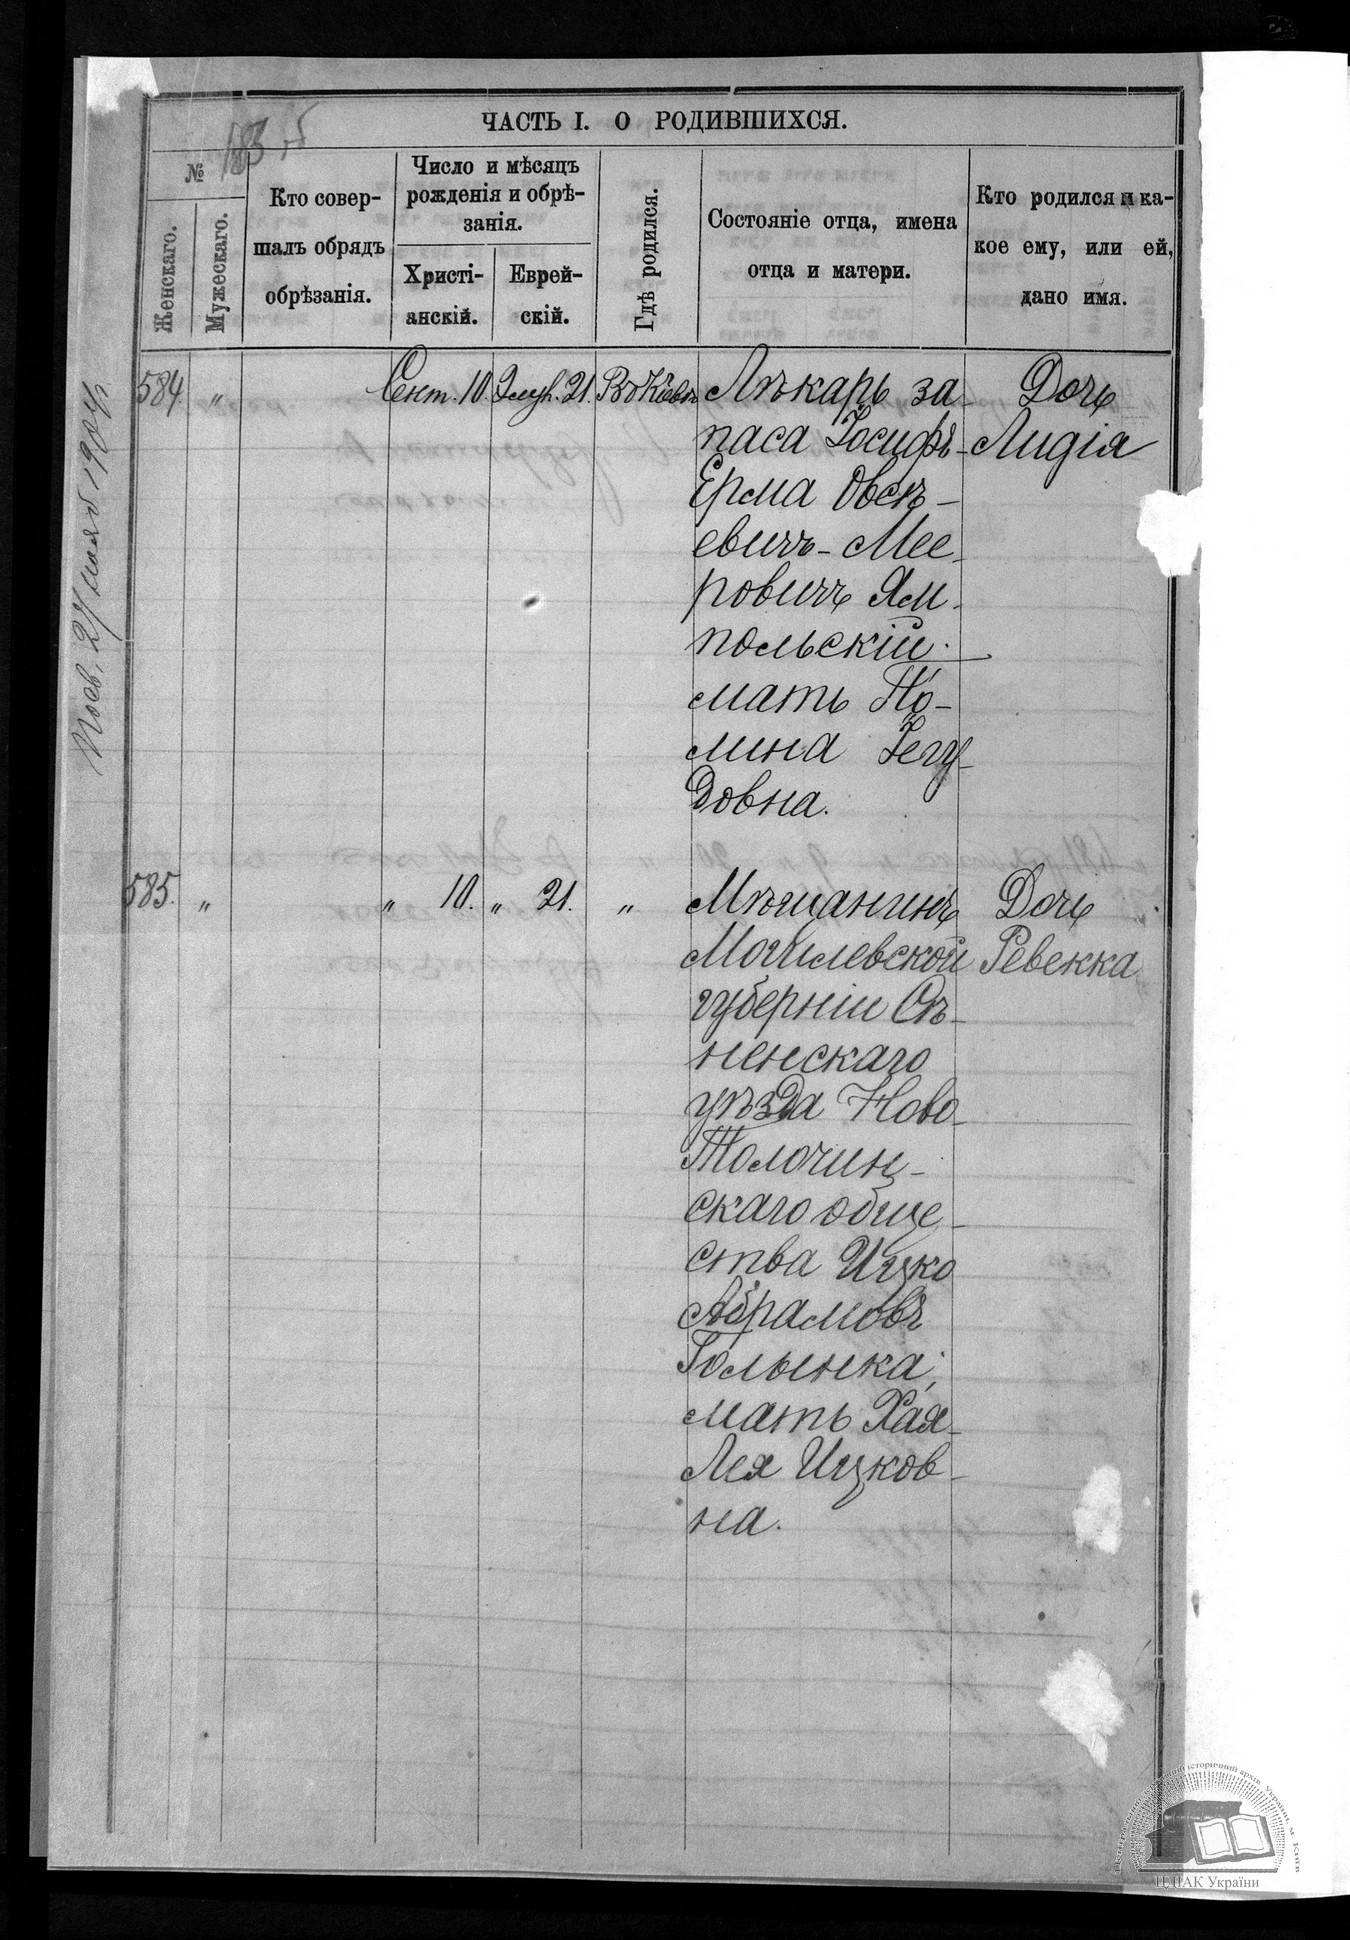 ЧАСТЬ I. О РОДИВШИХСЯ.
№
Женскаго.
Мужескаго.
Кто совер-
шалъ обрядъ
обрѣзанія.
Число и мѣсяцъ
рожденія и обрѣ-
занія.
Христі-
анскій.
Еврей-
скій.
Гдѣ родился.
Состояніе отца, имена
отца и матери.
Кто родился и ка-
кое ему, или ей,
дано имя.
584 " Сент. 10. Элул. 21. Въ Кіевѣ
Лѣкарь за-
паса Іосифъ-
Ерма Овсѣ-
евичъ-Мее-
ровичъ Ям-
польскій.
мать По-
лина Іегу-
довна.
Дочь
Лидія
585. " " 10. " 21. "
Мѣщанинъ
Могилевской
губерніи Сѣ-
ненскаго
уѣзда Ново-
Толочин-
скаго обще-
ства Ицко
Абрамовъ
Голынка,
мать Хая-
Лея Ицков-
на.
Дочь
Ревекка
1904 г.
ЦДІАК України